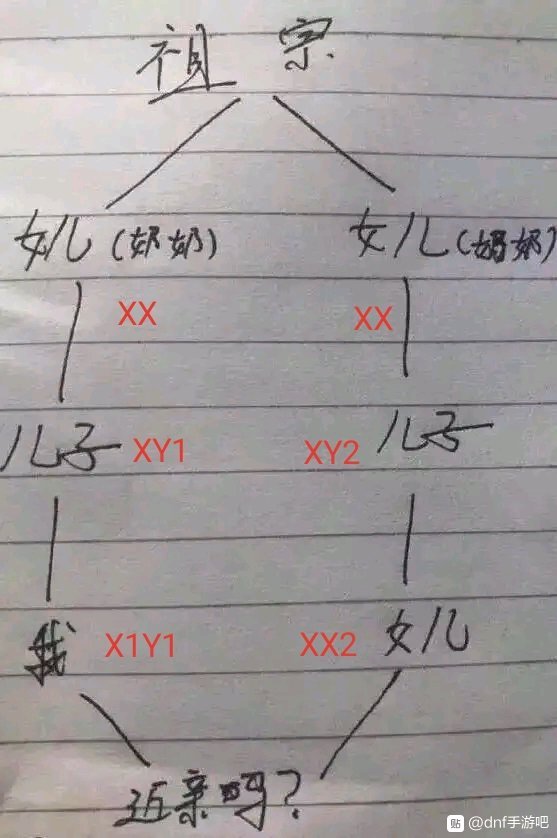 祖宗
女儿(奶奶) 女儿(奶奶)
XX XX
儿子 XY1 XY2 儿子
我 X1Y1 XX2 女儿
近亲吗?
贴 @dnf手游吧